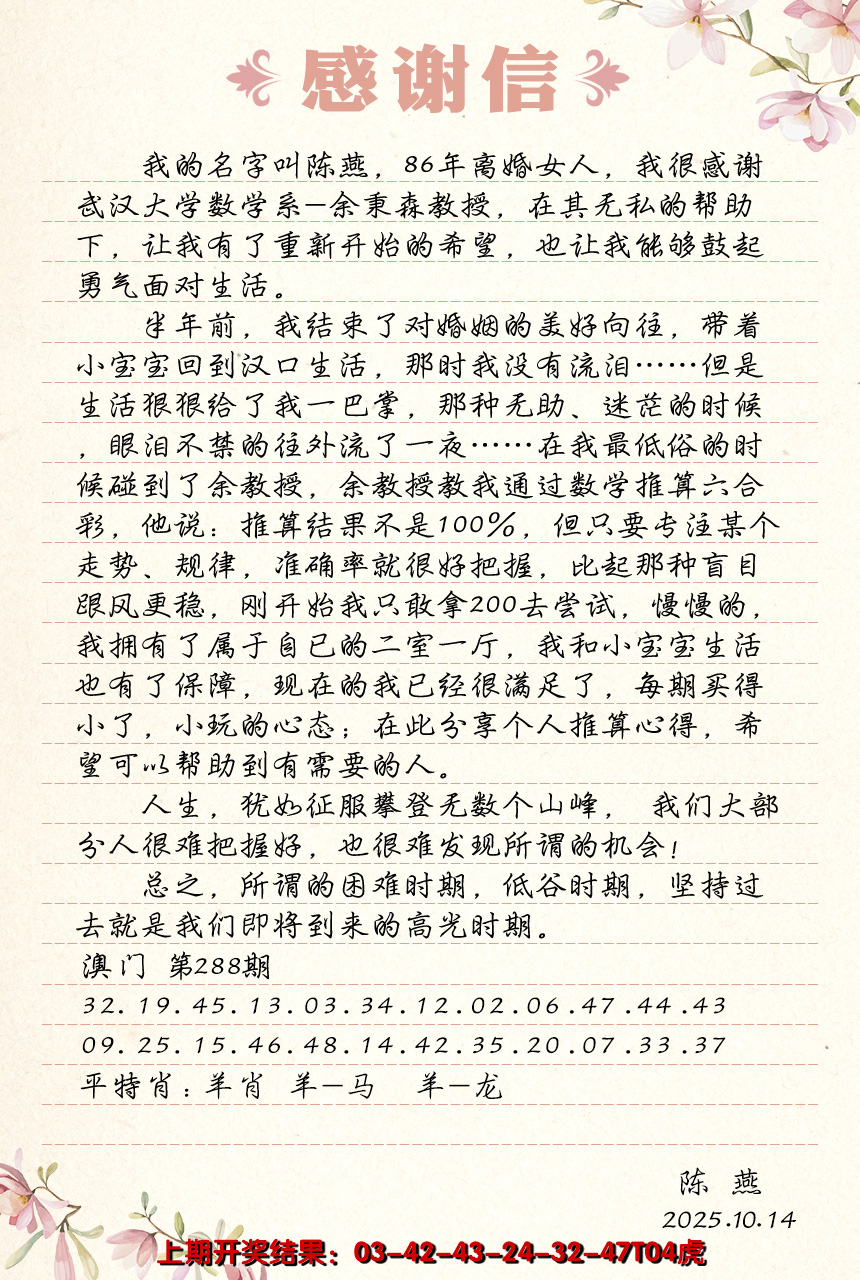 感谢信
我的名字叫陈燕，86年离婚女人，我很感谢
武汉大学数学系—余秉森教授，在其无私的帮助
下，让我有了重新开始的希望，也让我能够鼓起
勇气面对生活。
半年前，我结束了对婚姻的美好向往，带着
小宝宝回到汉口生活，那时我没有流泪……但是
生活狠狠给了我一巴掌，那种无助、迷茫的时候
，眼泪不禁的往外流了一夜……在我最低俗的时
候碰到了余教授，余教授教我通过数学推算六合
彩，他说：推算结果不是100%，但只要专注某个
走势、规律，准确率就很好把握，比起那种盲目
跟风更稳，刚开始我只敢拿200去尝试，慢慢的，
我拥有了属于自已的二室一厅，我和小宝宝生活
也有了保障，现在的我已经很满足了，每期买得
小了，小玩的心态；在此分享个人推算心得，希
望可以帮助到有需要的人。
人生，犹如征服攀登无数个山峰， 我们大部
分人很难把握好，也很难发现所谓的机会！
总之，所谓的困难时期，低谷时期，坚持过
去就是我们即将到来的高光时期。
澳门 第288期
32.19.45.13.03.34.12.02.06.47.44.43
09.25.15.46.48.14.42.35.20.07.33.37
平特肖：羊肖 羊—马 羊—龙
陈 燕
2025.10.14
上期开奖结果：03-42-43-24-32-47T04虎